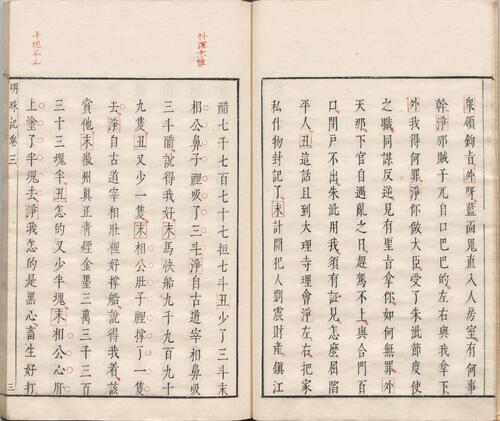 衆領鈞旨外呀藍面鬼直入人房室有何事
幹淨那賊子兀自口巴巴的左右與我拿下
外我得何罪淨你做大臣受了朱泚節度使
之職同謀反逆見有聖旨拿你如何無罪外
天那下官自遇亂之日趕駕不上與合門百
口閉戶不出朱泚用我須有証見怎麽屈陷
平人丑這話且到大理寺理會淨左右把家
私什物封記了末計開犯人劉震財產鎮江
科諢亦雅
醋七千七百七十七担七斗丑少了三斗末
相公鼻子裡吸了三斗淨自古道宰相鼻吸
三斗醋說得我好末馬快船九千九百九十
九隻丑又少一隻末相公肚子裡撑了一隻
去淨自古道宰相肚裡好撑船說得我着該
賞他末徽州真正青煙金墨三萬三千三百
三十三塊半丑怎的又少半塊末相公心肝
上塗了半塊去淨我怎的是黑心畜生好打
半塊不止
明珠記卷三
三